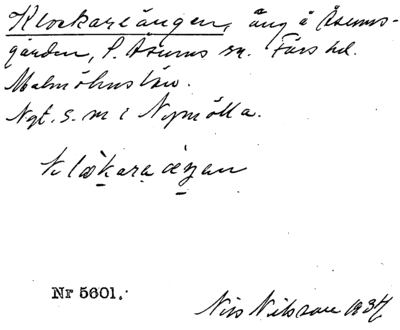 Klockareängen, äng å Åsums-
gården, S. Åsums sn. Färs hd.
Malmöhus län.
Ngt. s. m i Nymölla.
Nr 5601.
Nils Nilsson 1934